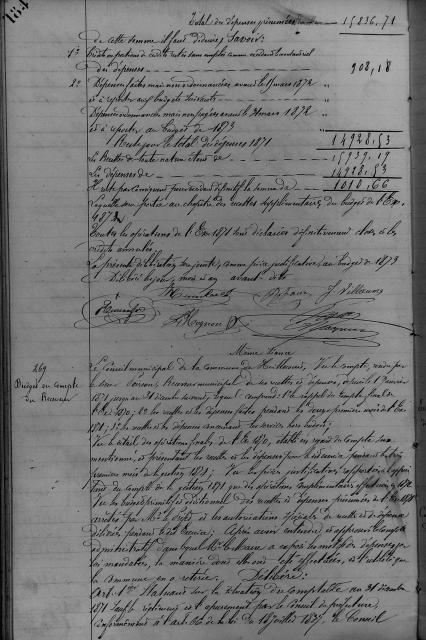 184
Total des dépenses présumées 15836,71
de cette somme il faut déduire, Savoir:
1° Crédits ou portions de crédits restés sans emploi comme excédant le montant réel
des dépenses 908,18
2° Dépenses faites mais non ordonnancées avant le 15 mars 1872 "
et à reporter aux budgets suivants "
Dépenses ordonnancées mais non payées avant le 31 mars 1872 "
et à reporter au budget de 1873
Reste pour le total des dépenses 1871 14928,53
Les Recettes de toute nature étant de 15939,19
Les dépenses de 14928,53
Il reste par conséquent pour excédant définitif la somme de 1010,66
Laquelle sera portée au chapitre des recettes supplémentaires du budget de l'Ex.
1872
Toutes les opérations de l'Ex. 1871 sont déclarées définitivement closes et les
crédits annulés
La présente délibération sera jointe, comme pièce justificative, au budget de 1873
Délibéré les jour, mois et an avant dits
J. Villeneuve
Même séance
269
Budget ou compte
du Receveur
Le Conseil municipal de la commune de
Vu le compte, rendu par
le Sieur Receveur municipal de ses recettes et dépenses, depuis le 1er Janvier
1871 jusqu'au 31 décembre suivant, lequel comprend: 1° le rappel du compte final de
l'Ex. 1870; 2° les recettes et les dépenses faites pendant les douze premiers mois de l'Ex
1871; 3° les recettes et les dépenses concernant les services hors budget;
Vu le détail des opérations finales de l'Ex. 1870, établi en regard du compte sus
mentionné, et présentant les recettes et les dépenses
premiers mois de la gestion 1871; Vu les pièces justificatives rapportées à l'appui
tant du compte de la gestion 1871 que des opérations complémentaires effectuées en 1872
Vu les budgets primitif et additionnel des recettes et dépenses présumées de l'Ex 1871
arrêtés par Mr le Préfet et les autorisations spéciales de recette et de dépense
délivrées pendant le dit Exercice; Après avoir entendu et approuvé le compte
administratif dans lequel Mr le Maire a exposé les motifs des dépenses par
lui mandatées, la manière dont elles ont été effectuées, et l'utilité que
la commune en a retirée. Délibère:
Art. 1er Statuant sur la situation du comptable au 31 décembre
1871 sauf le règlement et l'apurement par le Conseil de préfecture,
conformément à l'art. de la loi du 18 juillet 1837, le Conseil